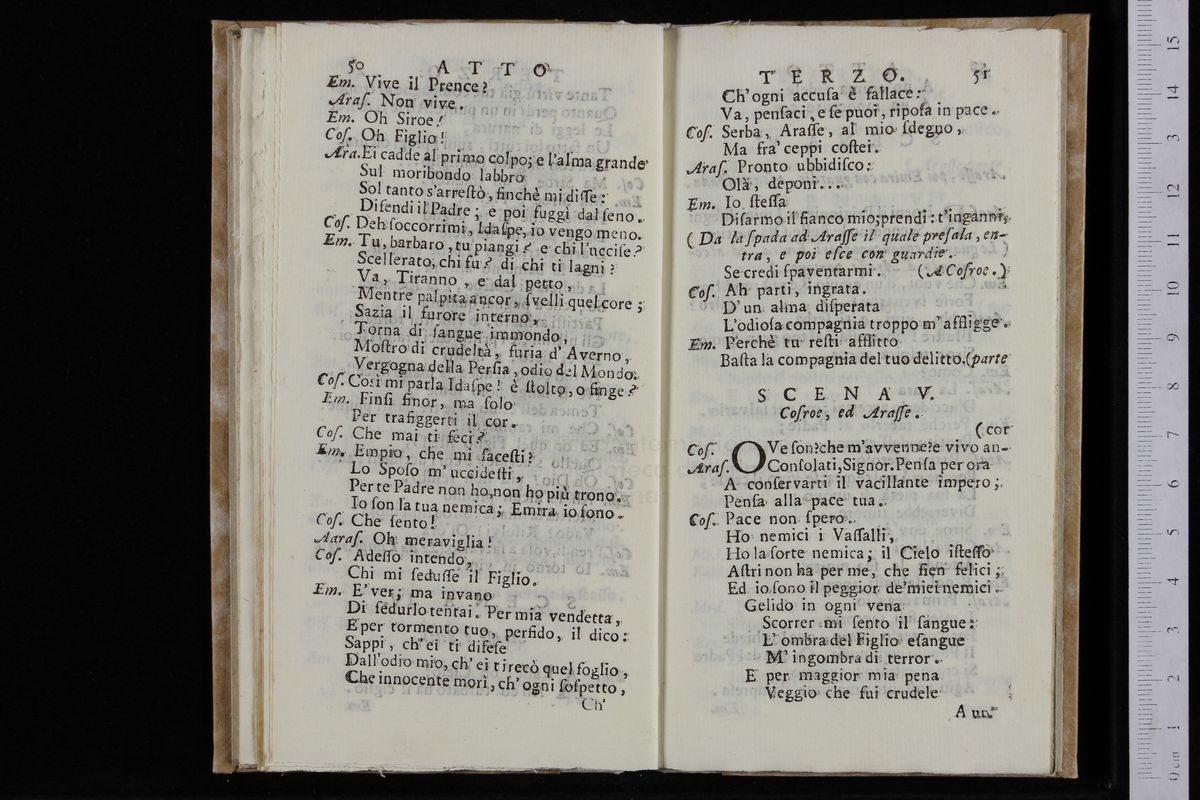 50 ATTO
Em. Vive il Prence?
Araſ. Non vive.
Em. Oh Siroe!
Coſ. Oh Figlio!
Ara. Ei cadde al primo colpo; e l'alma grande
Sul moribondo labbro
Sol tanto s'arreſtò, finchè mi diſſe:
Difendi il Padre; e poi fuggì dal ſeno.
Coſ. Deh ſoccorrimi, Idaſpe, io vengo meno.
Em. Tu, barbaro, tu piangi? e chi l'ucciſe?
Scellerato, chi fu? di chi ti lagni?
Va, Tiranno, e dal petto,
Mentre palpita ancor, ſvelli quel core;
Sazia il furore interno,
Torna di ſangue immondo,
Moſtro di crudeltà, furia d'Averno,
Vergogna della Perſia, odio del Mondo.
Coſ. Così mi parla Idaſpe! è ſtolto, o finge?
Em. Finſi finor, ma ſolo
Per trafiggerti il cor.
Coſ. Che mai ti feci?
Em. Empio, che mi faceſti?
Lo Spoſo m'uccideſti,
Per te Padre non ho, non ho più trono.
Io ſon la tua nemica; Emira io ſono.
Coſ. Che ſento!
Aaraſ. Oh meraviglia!
Coſ. Adeſſo intendo,
Chi mi ſeduſſe il Figlio.
Em. E' ver; ma invano
Di ſedurlo tentai. Per mia vendetta,
E per tormento tuo, perfido, il dico:
Sappi, ch'ei ti difeſe
Dall'odio mio, ch'ei ti recò quel foglio,
Che innocente morì, ch'ogni ſoſpetto,
Ch'
TERZO. 51
Ch'ogni accuſa è fallace:
Va, penſaci, e ſe puoi, ripoſa in pace.
Coſ. Serba, Araſſe, al mio ſdegno,
Ma fra' ceppi coſtei.
Araſ. Pronto ubbidiſco:
Olà, deponi...
Em. Io ſteſſa
Diſarmo il fianco mio; prendi: t'inganni,
( Da la ſpada ad Araſſe il quale preſala, en-
tra, e poi eſce con guardie. )
Se credi ſpaventarmi. (A Coſroe.)
Coſ. Ah parti, ingrata.
D'un alma diſperata
L'odioſa compagnia troppo m'affligge.
Em. Perchè tu reſti afflitto
Baſta la compagnia del tuo delitto. (parte
SCENA V.
Coſroe, ed Araſſe.
(cor
Coſ. OVe ſon? che m'avvenne? e vivo an-
Araſ. Conſolati, Signor. Penſa per ora
A conſervarti il vacillante impero;
Penſa alla pace tua.
Coſ. Pace non ſpero.
Ho nemici i Vaſſalli,
Ho la ſorte nemica; il Cielo iſteſſo
Aſtri non ha per me, che ſien felici;
Ed io ſono il peggior de' miei nemici.
Gelido in ogni vena
Scorrer mi ſento il ſangue:
L'ombra del Figlio eſangue
M'ingombra di terror.
E per maggior mia pena
Veggio che fui crudele
A un'